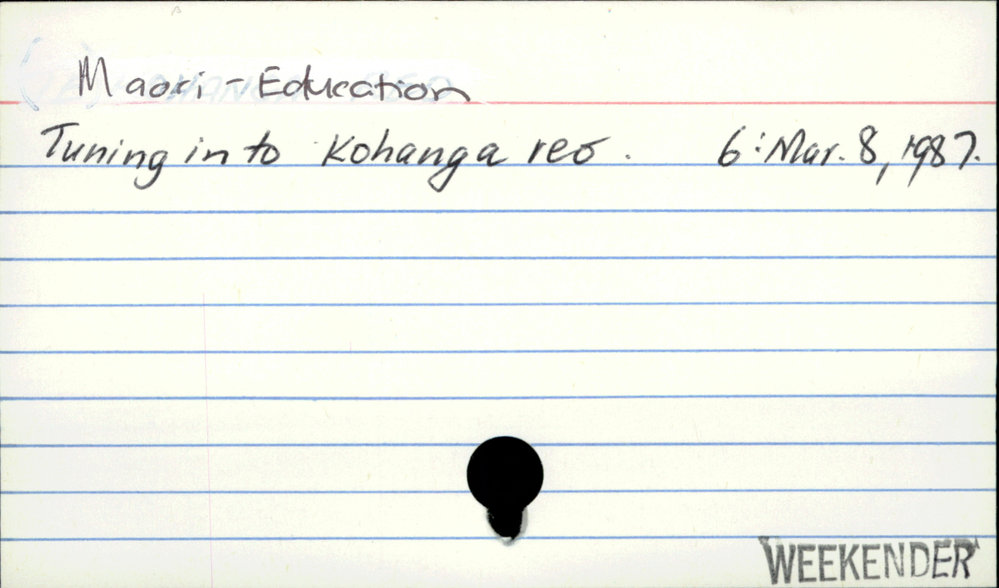 Maori - Education
Tuning in to Kohanga reo. 6: Mar. 8, 1987.
WEEKENDER